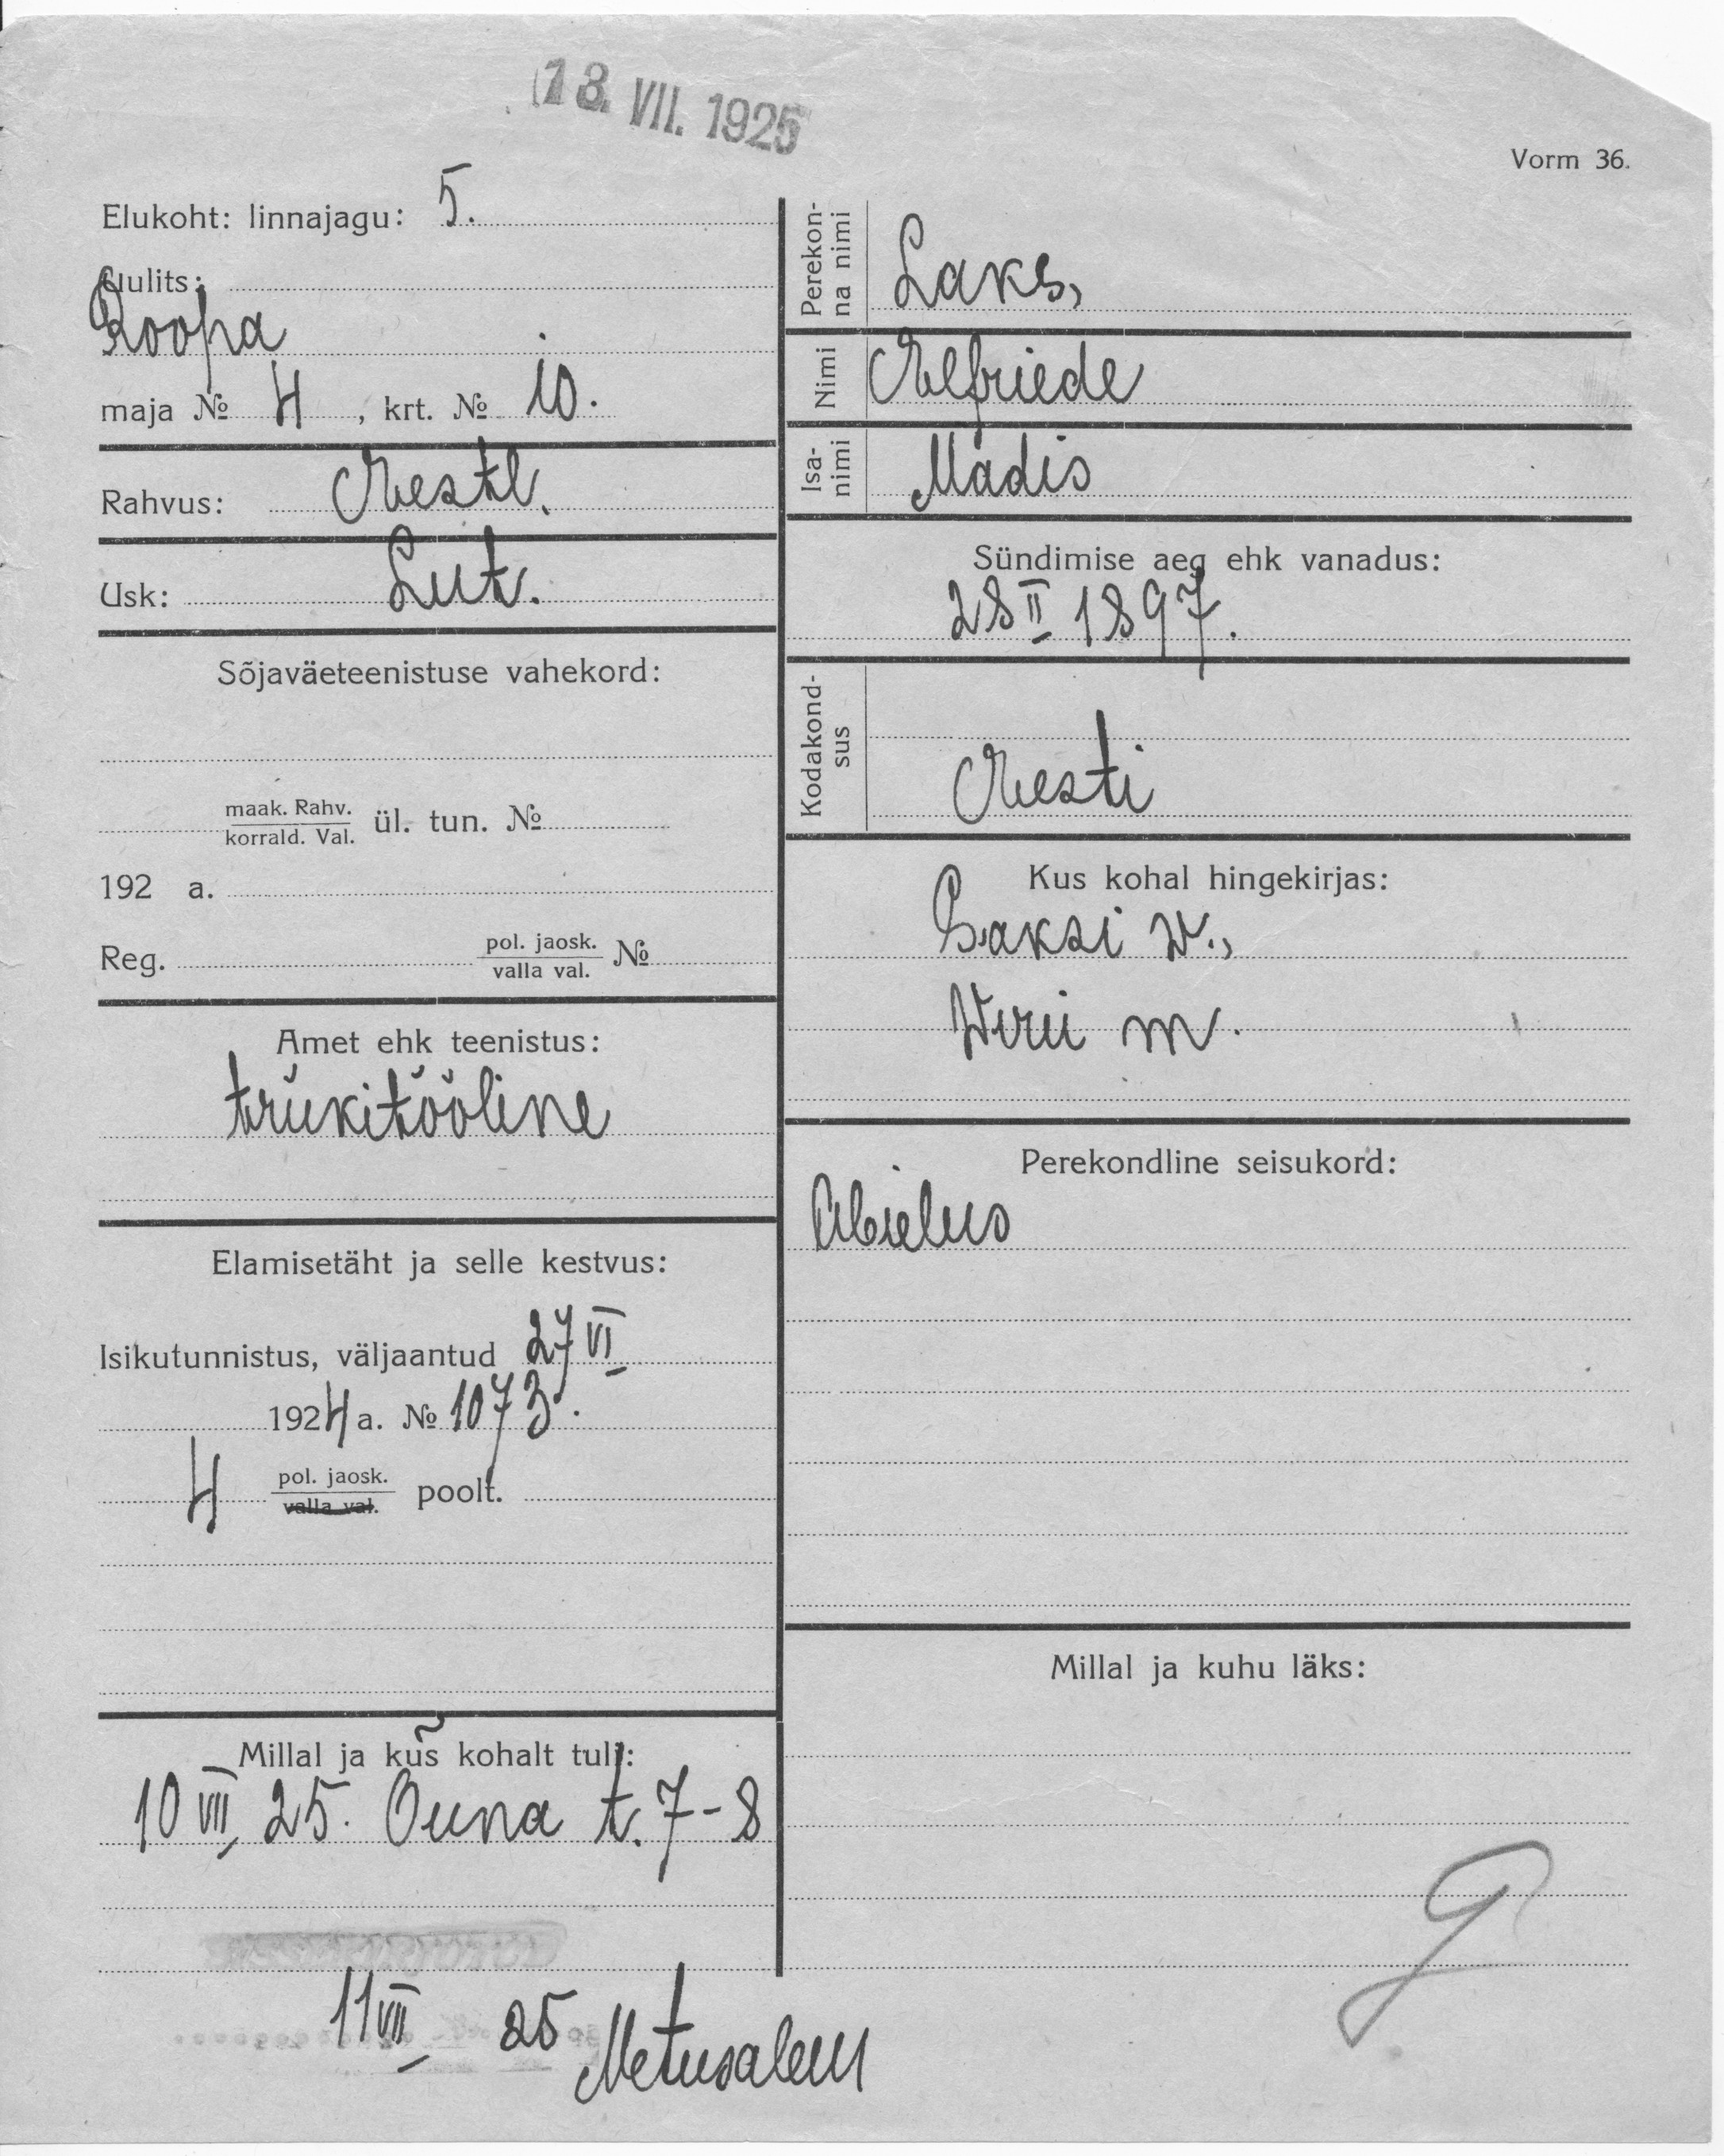 13. VII. 1925
Vorm 36.
Elukoht: linnajagu: 5.
Uulits:
Roopa
maja № 4, krt. № 10.
Rahvus: Eestl.
Usk: Lut.
Sõjaväeteenistuse vahekord:
maak. Rahv.
korrald. Val. ül. tun. №
192 a.
Reg. pol. jaosk. №
valla val.
Amet ehk teenistus:
trükitööline
Elamisetäht ja selle kestvus:
Isikutunnistus, väljaantud 27 VI
1924 a. № 1073.
4 pol. jaosk. poolt.
valla val.
Millal ja kus kohalt tuli:
10 VII 25. Õuna t. 7-8
11 VII 25 Metusalem
Perekon-
na nimi Laks,
Nimi Elfriede
Isa-
nimi Madis
Sündimise aeg ehk vanadus:
28 II 1897.
Kodakond-
sus Eesti
Kus kohal hingekirjas:
Saksi w.,
Wiru m.
Perekondline seisukord:
Abielus
Millal ja kuhu läks: